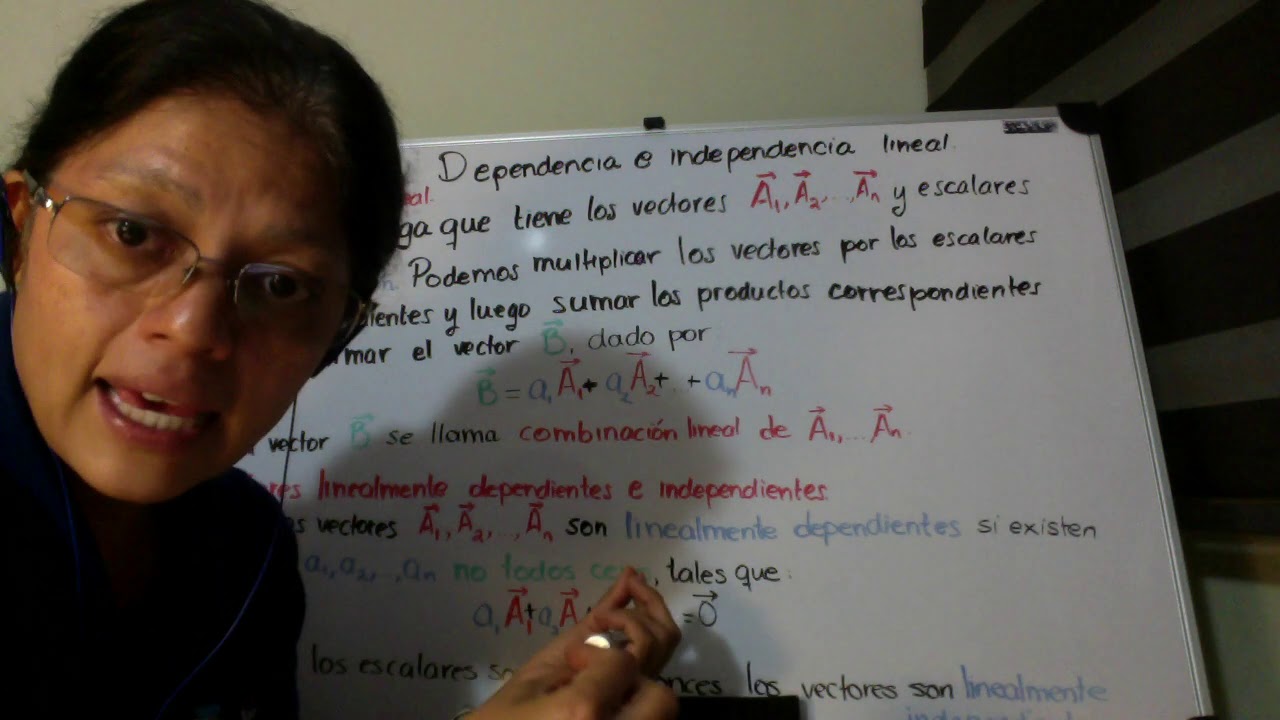 Dependencia e independencia lineal.
que tiene los vectores A⃗₁, A⃗₂, ..., A⃗ₙ y escalares
Podemos multiplicar los vectores por los escalares
y luego sumar los productos correspondientes
el vector B⃗, dado por
B⃗ = a₁A⃗₁ + a₂A⃗₂ + .. + aₙA⃗ₙ
vector B⃗ se llama combinación lineal de A⃗₁, ... A⃗ₙ.
linealmente dependientes e independientes
vectores A⃗₁, A⃗₂, ..., A⃗ₙ son linealmente dependientes si existen
a₁, a₂, .., aₙ no todos, tales que:
a₁A⃗₁ + a₂A⃗ = 0⃗
los escalares los vectores son linealmente